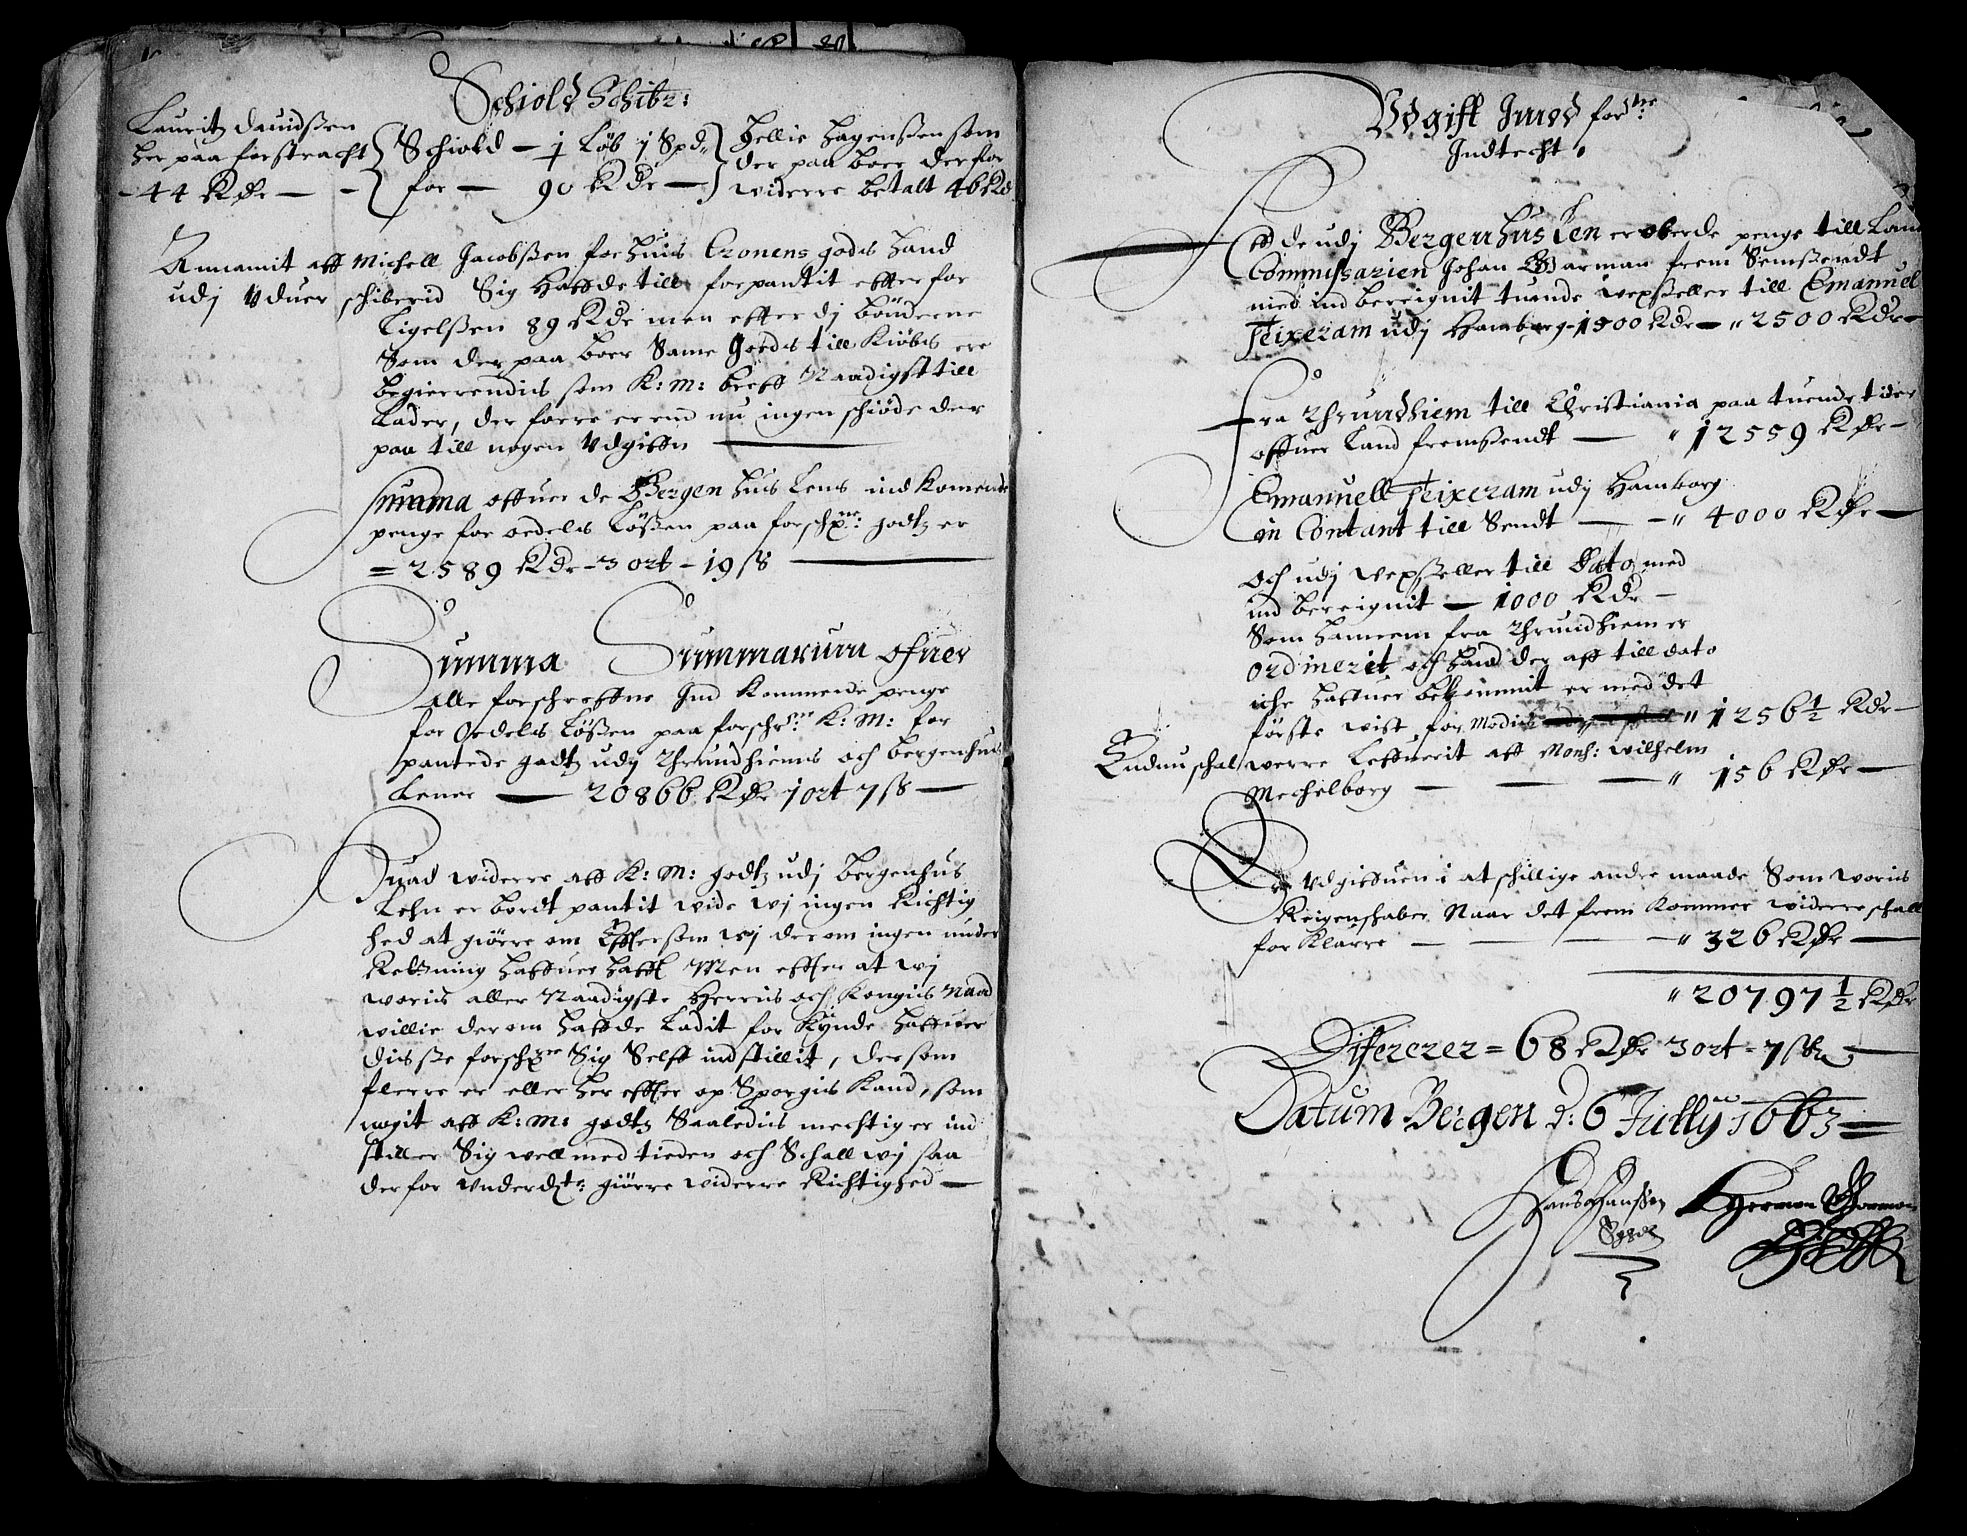 Schiold Schibr:
Lauritz Dauidssen
her paa forstracht
- 44 Rdr -
Schiold - 1 Løb j Spd
for - 90 Rdr -
Hellie Hagenssen som
der paa boer derfor
widerre betalt 46 Rd
Annamit aff Michell Jacobssen for huis Cronens godts hand
udj Uduer schiberid Sig Haffde till forpantit effter for
Ligelssen 89 Rdr men effter dj bønderne
Som der paa boer Same Goeds till Kiøbs ere
begierrendis som K: M: breff Naadigst till
Lader, der forre er end nu ingen schiøde der
paa till nogen Udgiffn
Summa offuer de Bergenhus Lens ind Komende
penge for oedels Løssen paa forschrne: godtz er
= 2589 Rdr - 3 ort - 19 ss
Summa Summarum ofuer
Alle forschreffne Ind Kommende penge
for Oedels Løssen paa forschrne: K: M: for
pantede godtz udj Thrundhiems och Bergenhus
Lener — 20866 Rdr 1 ort 7 ss —
Huad widerre aff K: M: godtz udj Bergenhus
Lehn er bordt pantit wide wj ingen Richtig
hed at giørre om Effter som wj der om ingen under
Retning haffuer hafft Men effter at wj
woris aller Naadigste Herris och Kongis Naad
willie der om haffde Ladit for Kynde haffuer
disse forschrne Sig Selff indstillit, der som
flerre er eller her effter op Sporgis Kand, som
noget aff K: M: godtz Saaledis mechtig er ind
stiller Sig well med tieden och Schall wj saa
der for Underdte: giørre widerre Richtighed —
Udgift Imod forne:
Indtecht.
Aff de udj Bergenhus Len er oberde penge till Land
Commissarien Johan Garman frem Semssendt
med ind bereignit tuende wexseller till Emanuel
Teixeram udj Hamborg - 1500 Rdr — " 2500 Rdr —
Fra Thrundhiem till Christiania paa tuende tider
offuer Land fremssendt — " 12559 Rdr —
Emanuell Teixeram udj Hamborg
in Contant till Sendt — " 4000 Rdr —
Och udj wexseller till Dato med
ind bereignit — 1000 Rdr —
Som hannem fra Thrundhiem er
ordinerit och hand der aff till dato
iche haffuer bekommit er med det
første wist, for Modis " 1256 1/2 Rdr —
Endnu schal werre Leffuerit aff Monh: Wilhelm
Mechelborg — — — " 156 Rdr —
Er Udgiffuen i at schillige andre maade Som woris
Reigenschaber Naar det frem Kommer widerre schall
for Klarre — — — " 326 Rdr —
" 20797 1/2 Rdr
Differerer = 68 Rdr 3 ort - 7 ss
Datum Bergen d: 6 Jullij 1663
Hans Hanssen
Herman Garmann